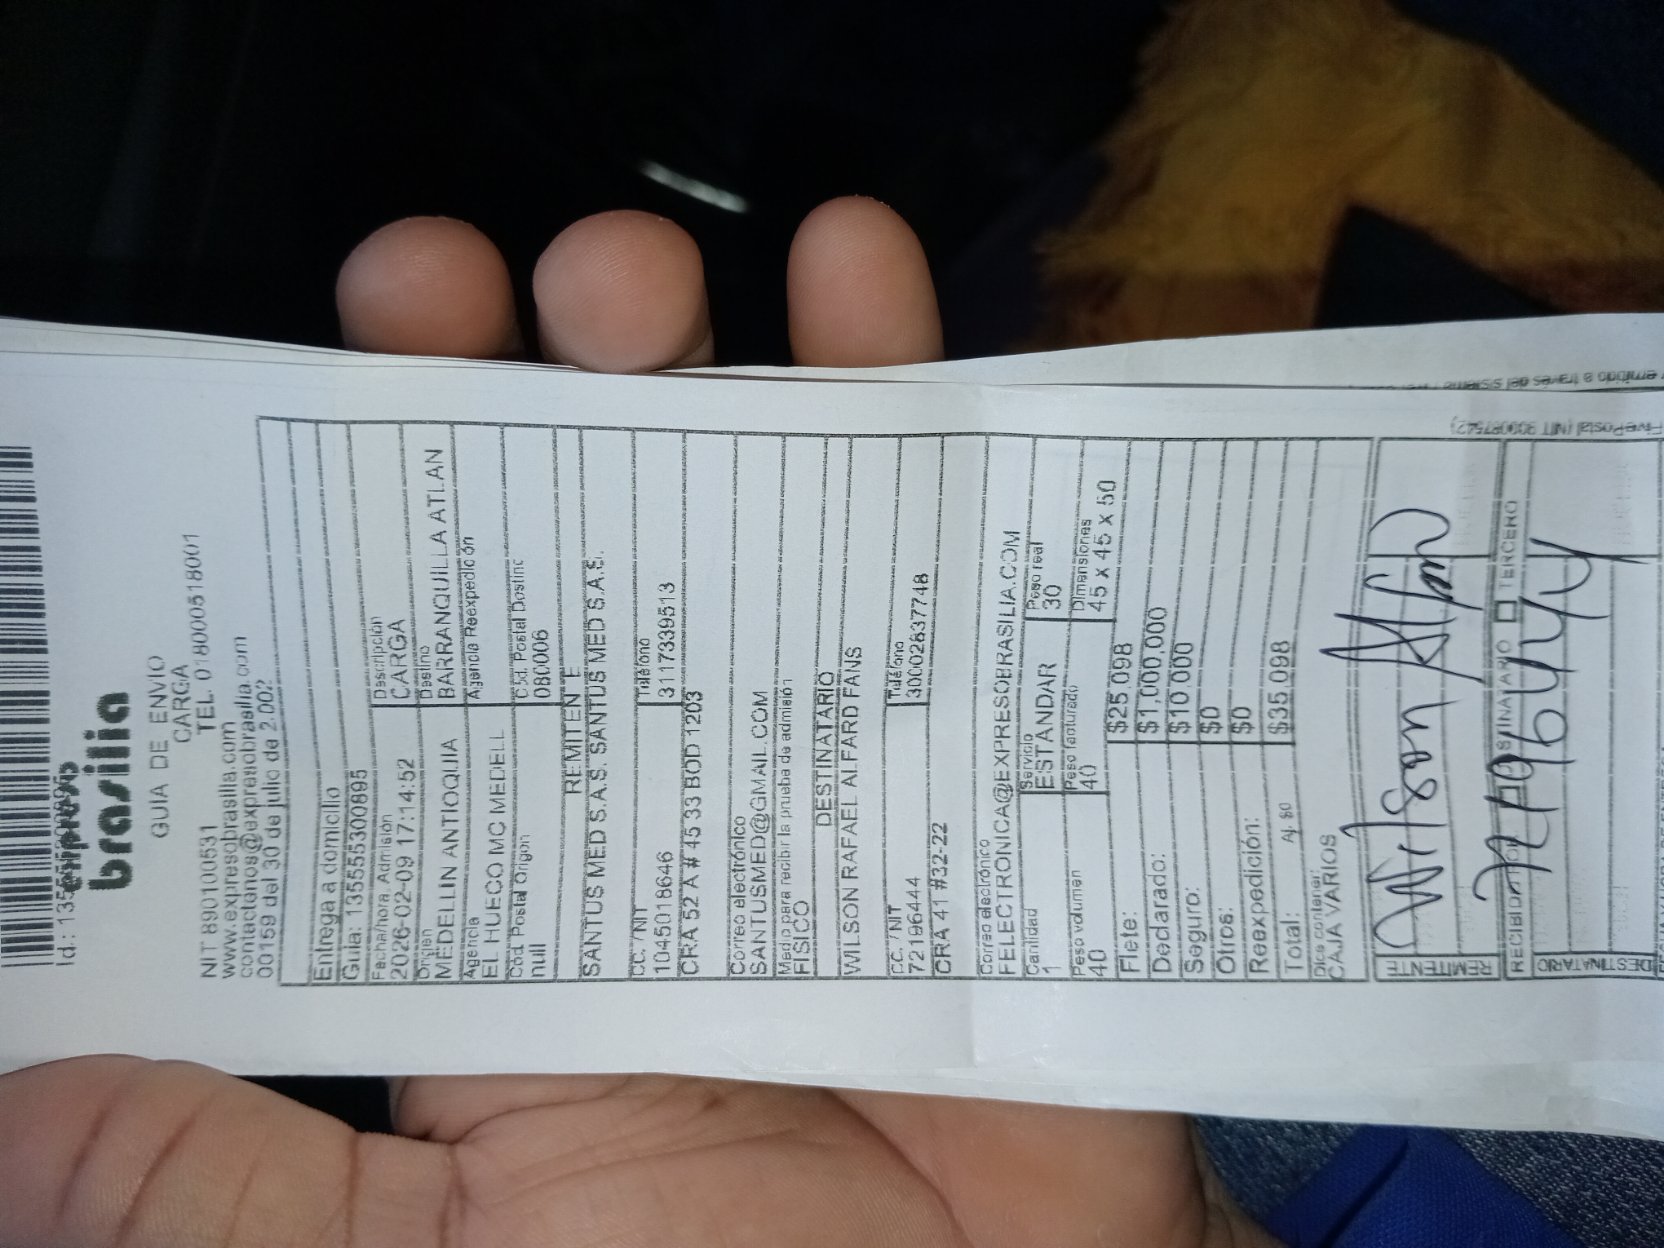 brasilia
GUIA DE ENVIO
CARGA
NIT 890100531 TEL. 018000518001
www.expresobrasilia.com
contactanos@expresobrasilia.com
00159 del 30 de julio de 2.002
Entrega a domicilio
Guia: 135555300895
Fecha/hora Admisión Descripción
2026-02-09 17:14:52 CARGA
Origen Destino
MEDELLIN ANTIOQUIA BARRANQUILLA ATLAN
Agencia Agencia Reexpedición
EL HUECO MC MEDELL
Cód. Postal Origen Cód. Postal Destino
null 080006
REMITENTE
SANTUS MED S.A.S. SANTUS MED S.A.S.
CC. /NIT Teléfono
1045018646 3117339513
CRA 52 A # 45 33 BOD 1203
Correo electrónico
SANTUSMED@GMAIL.COM
Medio para recibir la prueba de admisión
FISICO
DESTINATARIO
WILSON RAFAEL ALFARD FANS
CC. /NIT Teléfono
72196444 3002837748
CRA 41 #32-22
Correo electrónico
FELECTRONICA@EXPRESOBRASILIA.COM
Cantidad Servicio Peso real
1 ESTANDAR 30
Peso volumen Peso facturado Dimensiones
40 40 45 x 45 x 50
Flete: $25,098
Declarado: $1,000,000
Seguro: $10,000
Otros: $0
Reexpedición: $0
Total: Aj. $0 $35,098
Dice contener:
CAJA VARIOS
REMITENTE
TERCERO
DESTINATARIO
emitido a través del sistema
Postal (NIT 900087542)